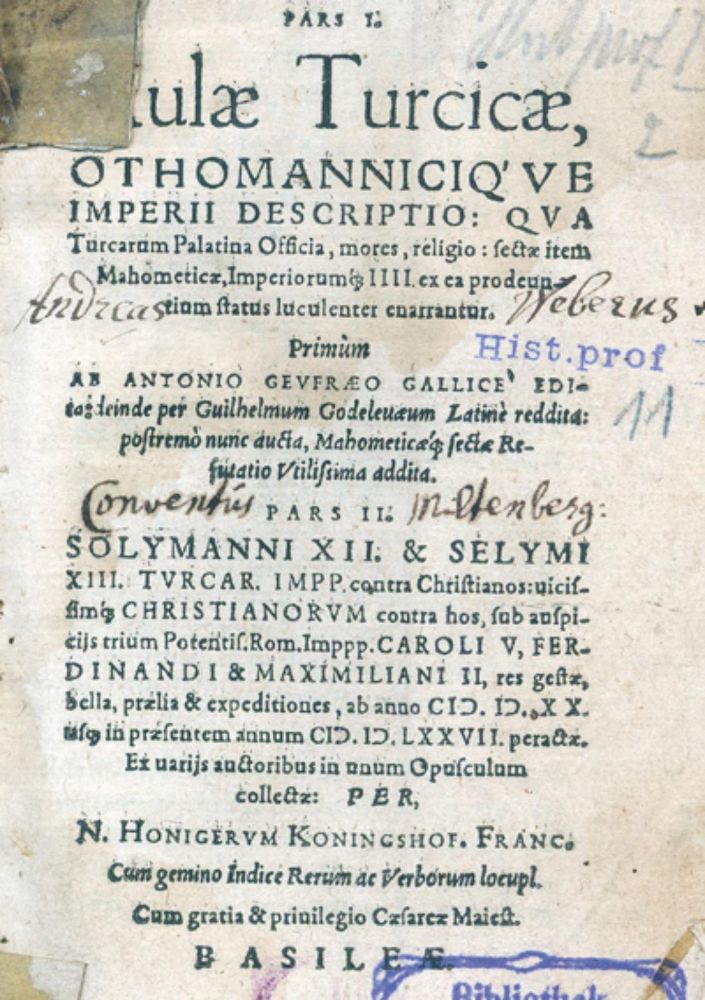 PARS I.
Hist. prof I
2
ulæ Turcicæ,
OTHOMANNICIQ'VE
IMPERII DESCRIPTIO: QVA
Turcarum Palatina Officia, mores, religio: sectæ item
Mahometicæ, Imperiorumq́; IIII. ex ea prodeun-
Andreas tium status luculenter enarrantur. Weberus
Primùm
Hist. prof
AB ANTONIO GEVFRÆO GALLICE' EDI-
ta: deinde per Guilhelmum Godeleuæum Latinè reddita:
11
postremò nunc aucta, Mahometicæq́; sectæ Re-
futatio Vtilissima addita.
Conventús PARS II. Miltenberg:
SOLYMANNI XII. & SELYMI
XIII. TVRCAR. IMPP. contra Christianos: uicis-
simq́; CHRISTIANORVM contra hos, sub auspi-
cijs trium Potentis. Rom. Imppp. CAROLI V, FER-
DINANDI & MAXIMILIANI II, res gestæ,
bella, prælia & expeditiones, ab anno CIↃ. IↃ. XX.
usq; in præsentem annum CIↃ. IↃ. LXXVII. peractæ.
Ex uarijs auctoribus in unum Opusculum
collectæ: PER,
N. HONIGERVM KONINGSHOF. FRANC.
Cum gemino Indice Rerum ac Verborum locupl.
Cum gratia & priuilegio Cæsareæ Maiest.
BASILEÆ.
Bibliothek